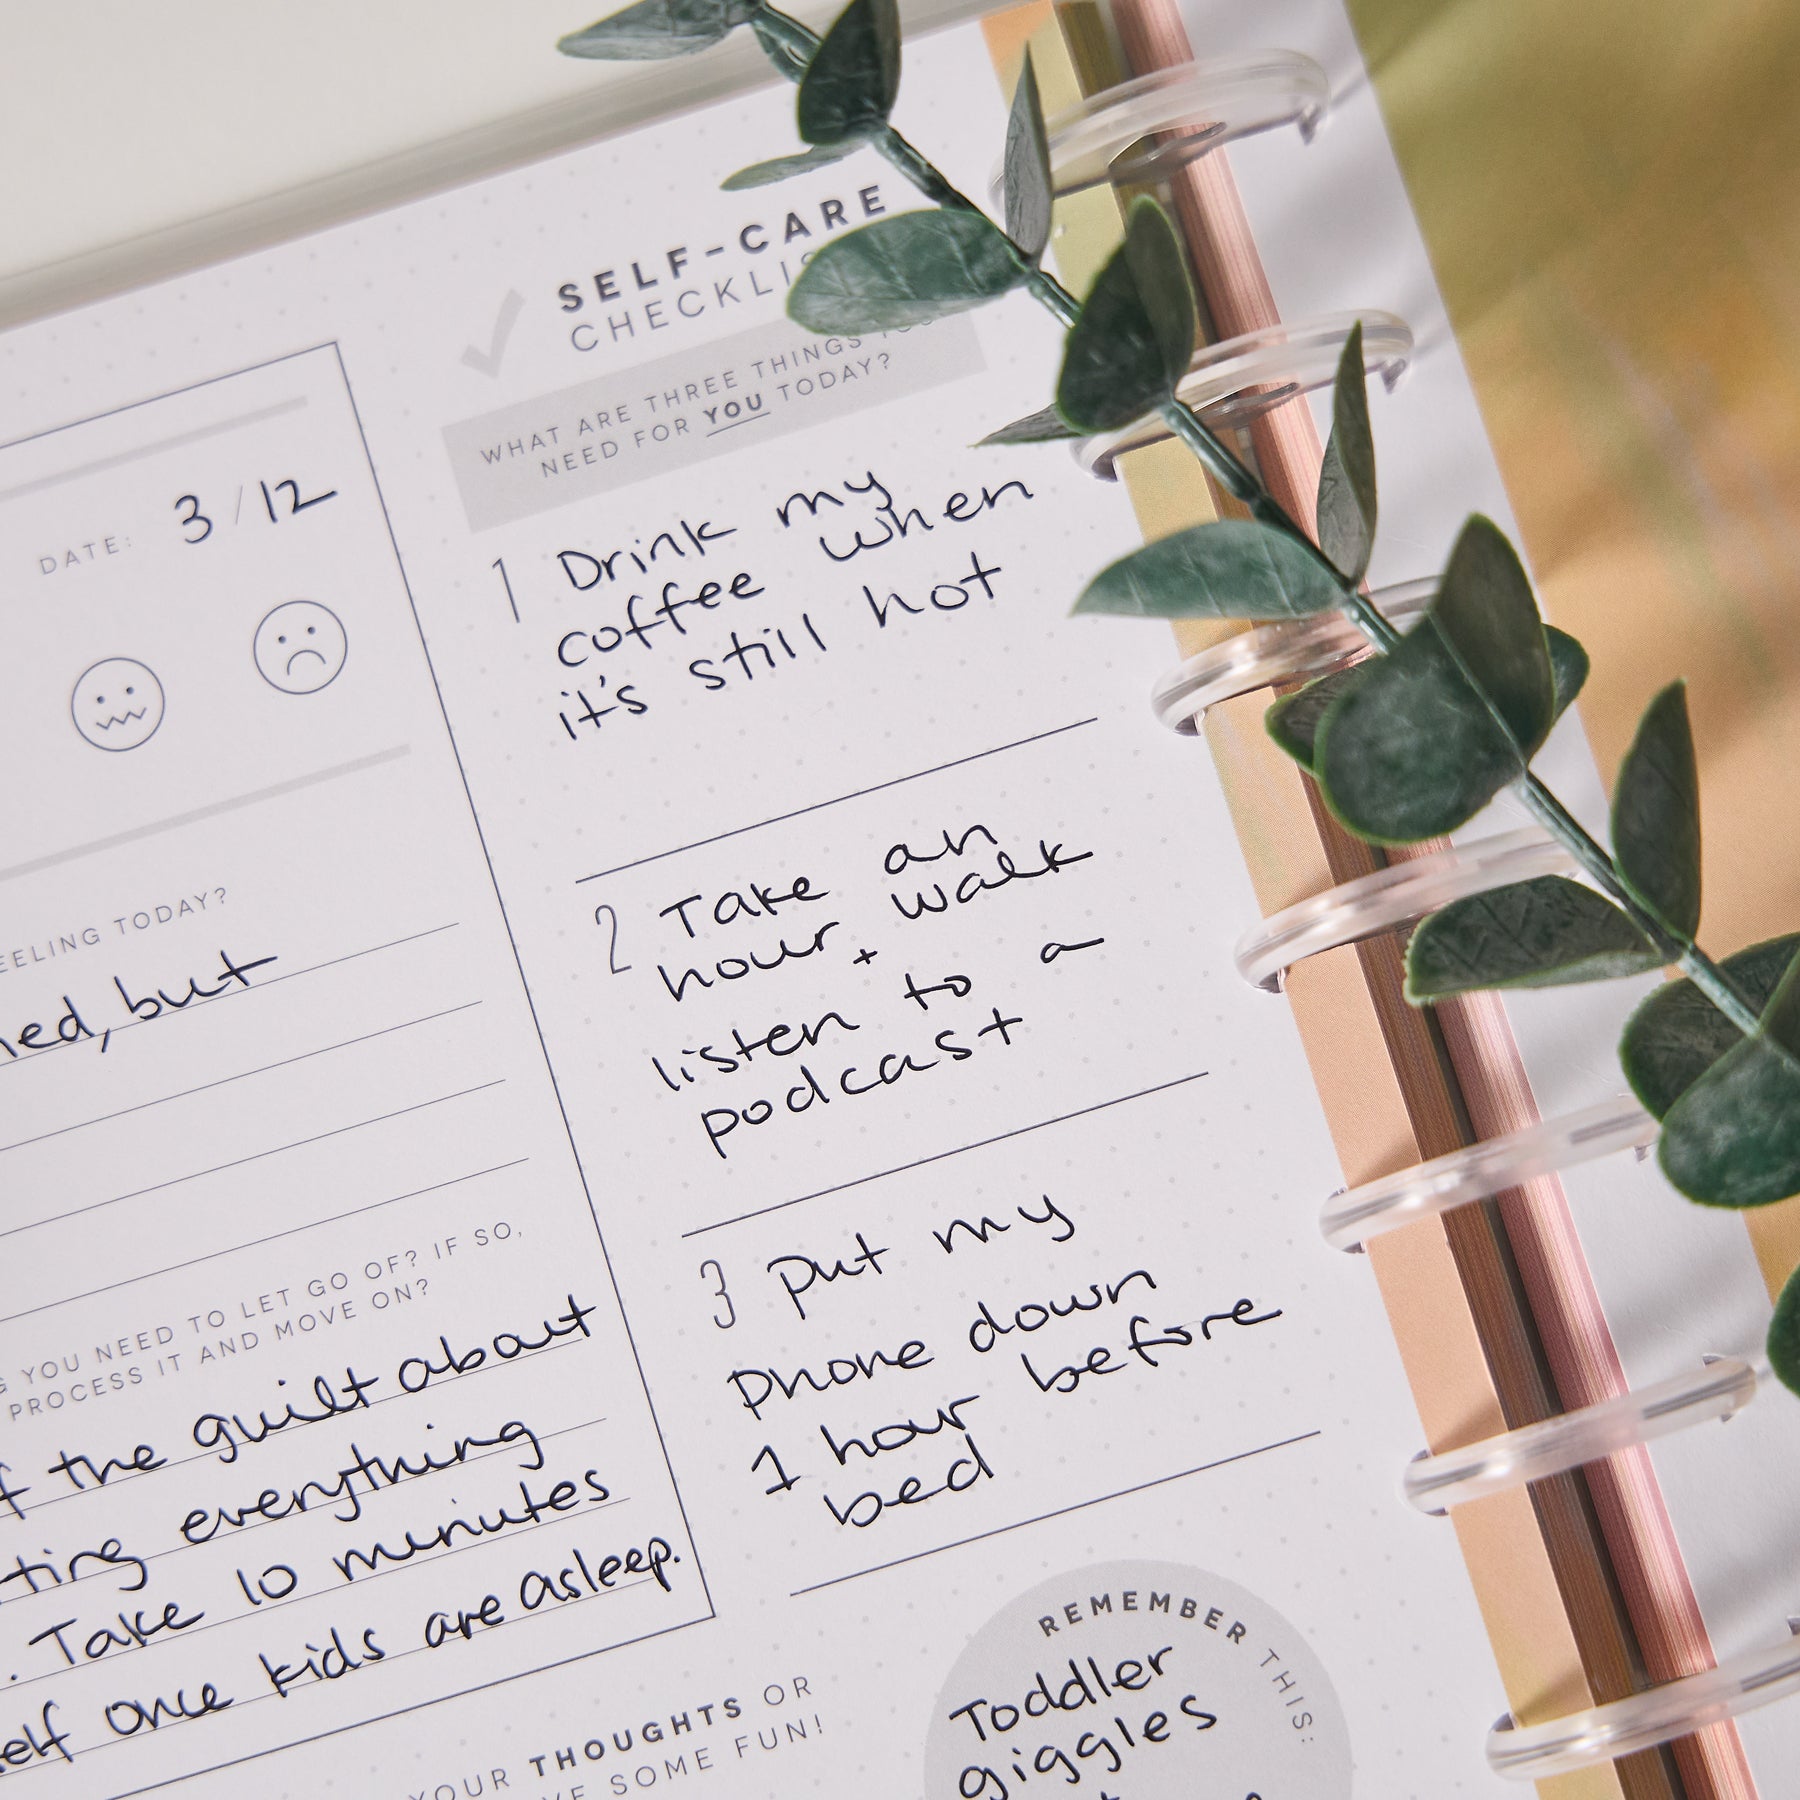 DATE: 3/12
EELING TODAY?
ned, but
YOU NEED TO LET GO OF? IF SO,
PROCESS IT AND MOVE ON?
f the guilt about
ting everything
. Take 10 minutes
elf once kids are asleep.
SELF-CARE
CHECKLIS
WHAT ARE THREE THINGS YOU
NEED FOR YOU TODAY?
1 Drink my
coffee when
it's still hot
2 Take an
hour walk
+
listen to a
podcast
3 Put my
phone down
1 hour before
bed
YOUR THOUGHTS OR
VE SOME FUN!
REMEMBER THIS:
Toddler
giggles